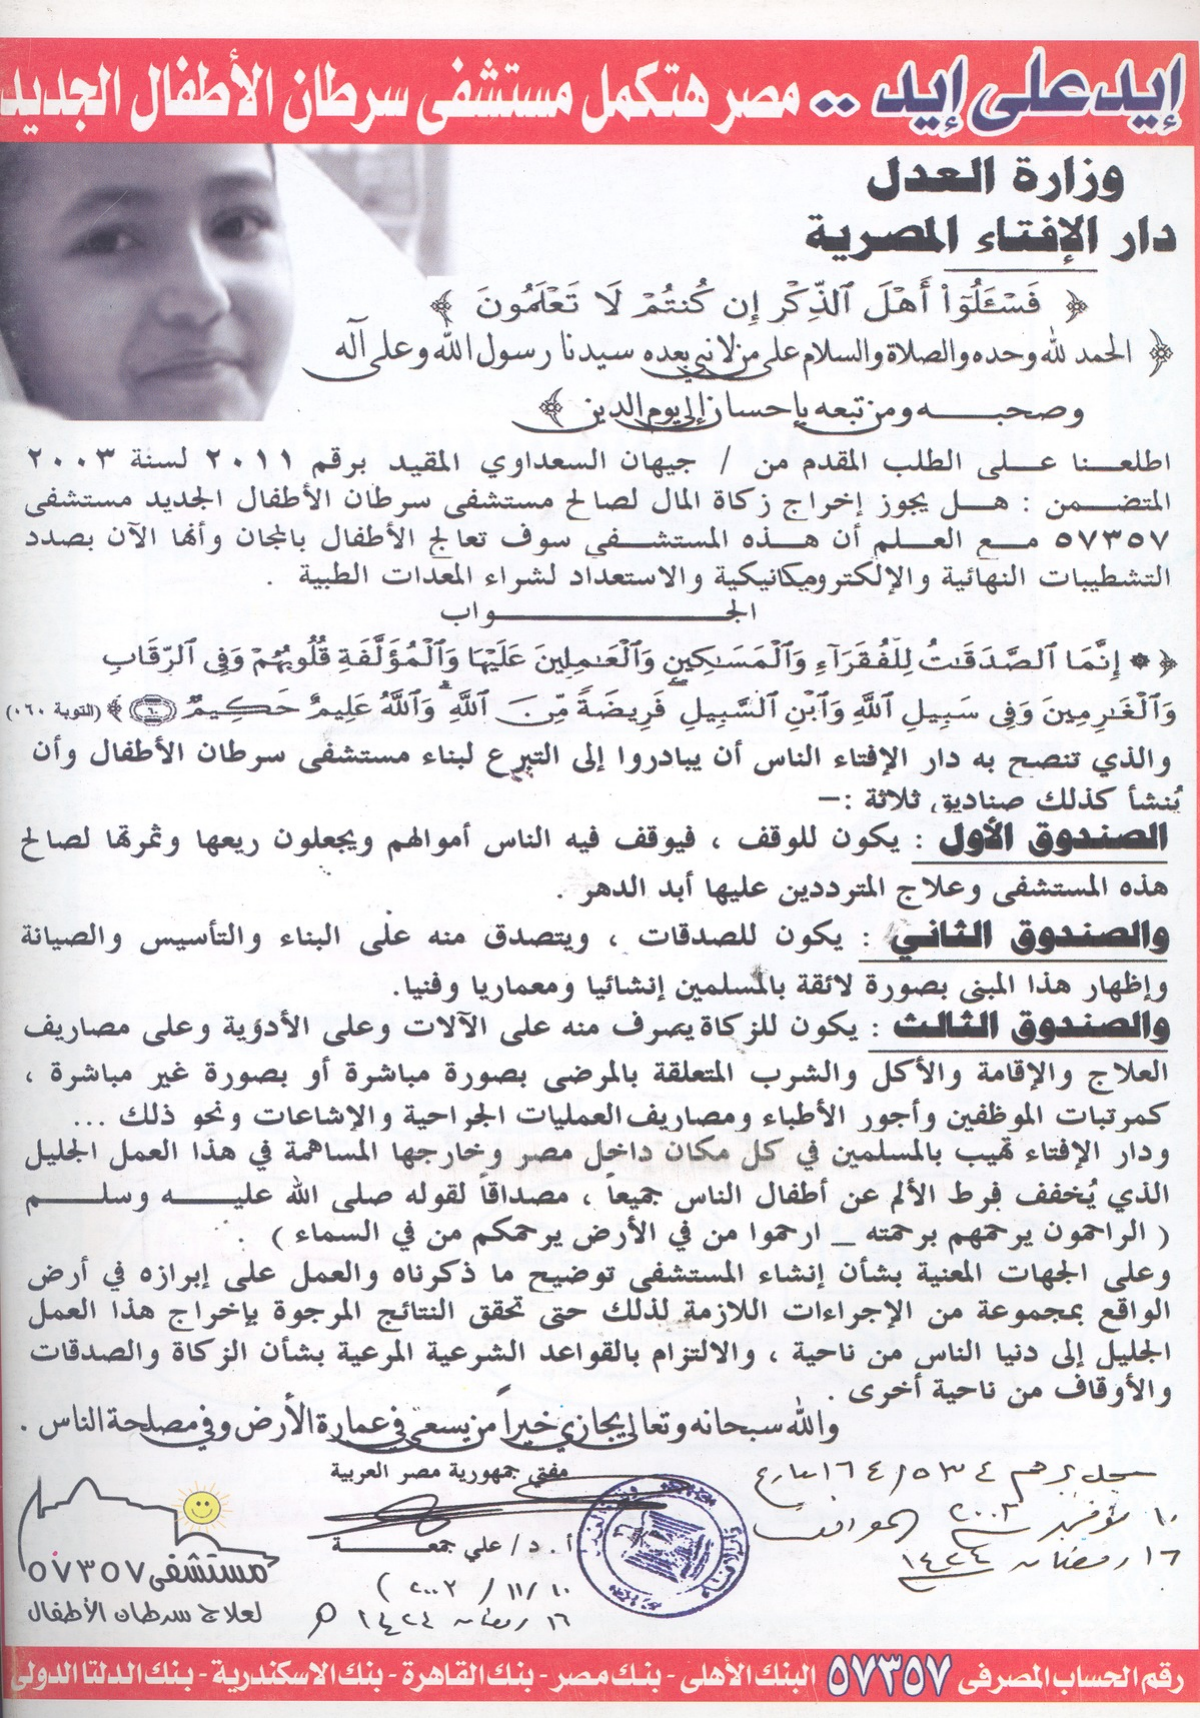 إيد على إيد .. مصر هتكمل مستشفى سرطان الأطفال الجديد
وزارة العدل
دار الإفتاء المصرية
﴿ فَسْـَٔلُوٓا۟ أَهْلَ ٱلذِّكْرِ إِن كُنتُمْ لَا تَعْلَمُونَ ﴾
﴿ الحمد لله وحده والصلاة والسلام على من لا نبي بعده سيدنا رسول الله وعلى آله
وصحبــه ومن تبعه بإحسان إلى يوم الدين ﴾
اطلعنا على الطلب المقدم من / جيهان السعداوي المقيد برقم ٢٠١١ لسنة ٢٠٠٣
المتضمن : هل يجوز إخراج زكاة المال لصالح مستشفى سرطان الأطفال الجديد مستشفى
٥٧٣٥٧ مع العلم أن هذه المستشفى سوف تعالج الأطفال بالمجان وأنها الآن بصدد
التشطيبات النهائية والإلكتروميكانيكية والاستعداد لشراء المعدات الطبية .
الجـــواب
﴿ ۞ إِنَّمَا ٱلصَّدَقَـٰتُ لِلْفُقَرَآءِ وَٱلْمَسَـٰكِينِ وَٱلْعَـٰمِلِينَ عَلَيْهَا وَٱلْمُؤَلَّفَةِ قُلُوبُهُمْ وَفِى ٱلرِّقَابِ
وَٱلْغَـٰرِمِينَ وَفِى سَبِيلِ ٱللَّهِ وَٱبْنِ ٱلسَّبِيلِ ۖ فَرِيضَةً مِّنَ ٱللَّهِ ۗ وَٱللَّهُ عَلِيمٌ حَكِيمٌ ٦٠ ﴾ (التوبة ٠٦٠)
والذي تنصح به دار الإفتاء الناس أن يبادروا إلى التبرع لبناء مستشفى سرطان الأطفال وأن
يُنشأ كذلك صناديق ثلاثة :–
الصندوق الأول : يكون للوقف ، فيوقف فيه الناس أموالهم ويجعلون ريعها وثمرتها لصالح
هذه المستشفى وعلاج المترددين عليها أبد الدهر .
والصندوق الثاني : يكون للصدقات ، ويتصدق منه على البناء والتأسيس والصيانة
وإظهار هذا المبنى بصورة لائقة بالمسلمين إنشائيا ومعماريا وفنيا.
والصندوق الثالث : يكون للزكاة يصرف منه على الآلات وعلى الأدوية وعلى مصاريف
العلاج والإقامة والأكل والشرب المتعلقة بالمرضى بصورة مباشرة أو بصورة غير مباشرة ،
كمرتبات الموظفين وأجور الأطباء ومصاريف العمليات الجراحية والإشاعات ونحو ذلك ...
ودار الإفتاء تهيب بالمسلمين في كل مكان داخل مصر وخارجها المساهمة في هذا العمل الجليل
الذي يُخفف فرط الألم عن أطفال الناس جميعاً ، مصداقاً لقوله صلى الله عليه وسلم
( الراحمون يرحمهم برحمته _ ارحموا من في الأرض يرحمكم من في السماء ) .
وعلى الجهات المعنية بشأن إنشاء المستشفى توضيح ما ذكرناه والعمل على إبرازه في أرض
الواقع بمجموعة من الإجراءات اللازمة لذلك حتى تحقق النتائج المرجوة بإخراج هذا العمل
الجليل إلى دنيا الناس من ناحية ، والالتزام بالقواعد الشرعية المرعية بشأن الزكاة والصدقات
والأوقاف من ناحية أخرى .
والله سبحانه وتعالى يجازي خيراً من يسعى في عمارة الأرض وفي مصلحة الناس .
سجل برقم ١٦٤/٥٣٤ بتاريخ
١٠ نوفمبر ٢٠٠٣ الموافق
١٦ رمضان ١٤٢٤
مفتي جمهورية مصر العربية
أ . د / علي جمعــة
١٠ / ١١ / ٢٠٠٣
١٦ رمضان ١٤٢٤ هـ
مستشفى ٥٧٣٥٧
لعلاج سرطان الأطفال
رقم الحساب المصرفى ٥٧٣٥٧ البنك الأهلى - بنك مصر - بنك القاهرة - بنك الاسكندرية - بنك الدلتا الدولى